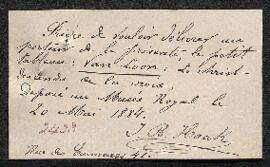 Prière de vouloir délivrer au
porteur de la présente, le petit
tableau: Van Loon. Le Christ
descendu de la croix,
déposé au Musée Royal le
20 Mai 1884.
J. B.
Rue des 41.